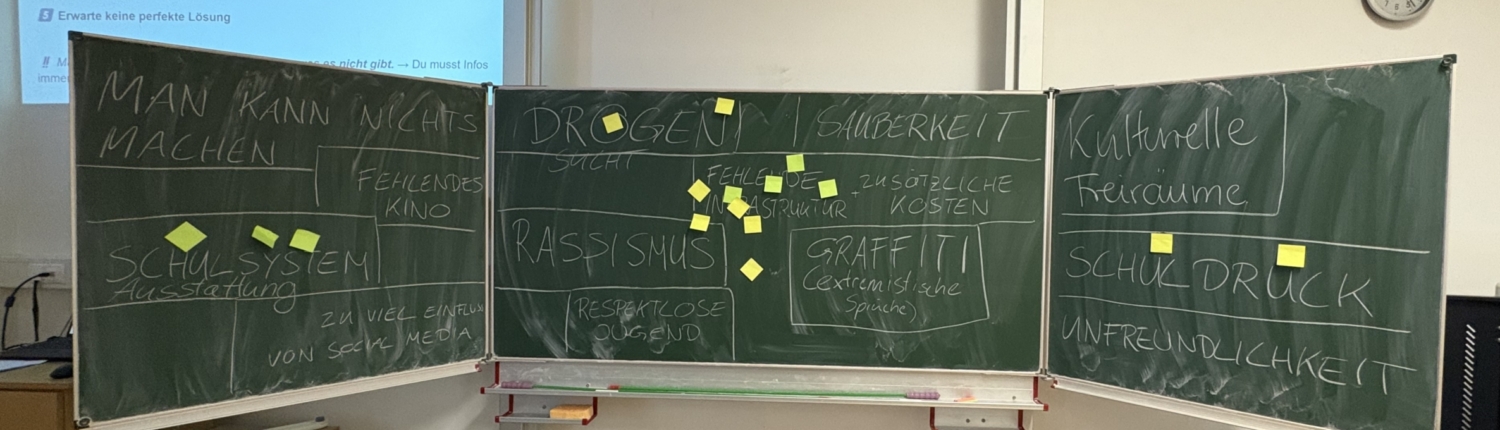 5 Erwarte keine perfekte Lösung
es nicht gibt. → Du musst Infos
MAN KANN NICHTS
MACHEN
FEHLENDES
KINO
SCHULSYSTEM
Ausstattung
ZU VIEL EINFLUSS
VON SOCIAL MEDIA
DROGEN
SUCHT
SAUBERKEIT
FEHLENDE
INFRASTRUKTUR
ZUSÄTZLICHE
KOSTEN
RASSISMUS
GRAFFITI
(extremistische
Sprüche)
RESPEKTLOSE
JUGEND
Kulturelle
Freiräume
SCHULDRUCK
UNFREUNDLICHKEIT